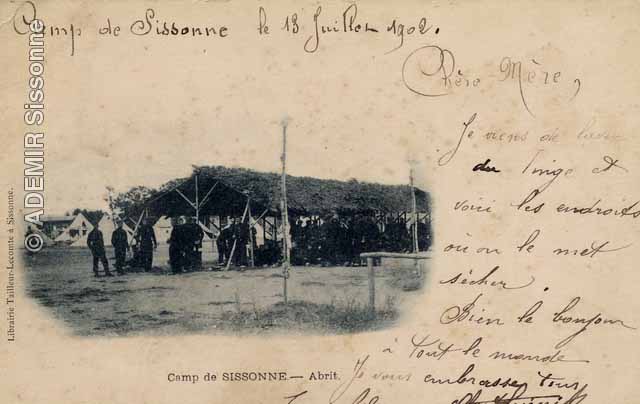 Camp de Sissonne le 13 Juillet 1902.
Chère Mère,
Je viens de laver
du linge et
voici les endroits
où on le met
sécher.
Bien le bonjour
à tout le monde
Je vous embrasse tous
Camp de SISSONNE. — Abrit.
Librairie Tailleur-Lecomte à Sissonne.
© ADEMIR Sissonne